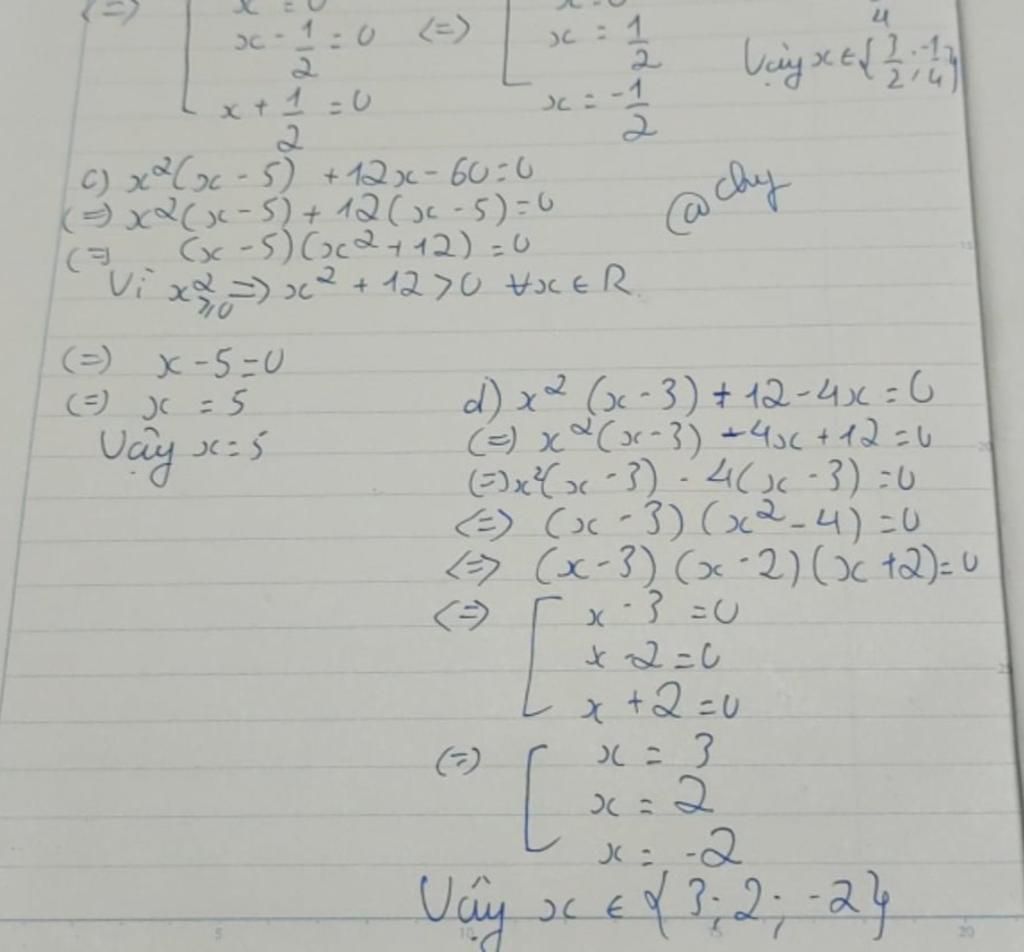 (=) x = 0
x - 1/2 = 0 (=) x = 1/2
x + 1/2 = 0 x = -1/2
4
Vậy x ∈ { 3/2 ; -1/4 }
c) x²(x - 5) + 12x - 60 = 0
(=) x²(x - 5) + 12(x - 5) = 0
(=) (x - 5)(x² + 12) = 0
Vì x² ≥ 0 => x² + 12 > 0 ∀x ∈ R
@chy
(=) x - 5 = 0
(=) x = 5
Vậy x = 5
d) x² (x - 3) + 12 - 4x = 0
(=) x²(x - 3) - 4x + 12 = 0
(=) x²(x - 3) - 4(x - 3) = 0
<=> (x - 3) (x² - 4) = 0
<=> (x - 3) (x - 2) (x + 2) = 0
<=> [ x - 3 = 0
x - 2 = 0
x + 2 = 0
(=) [ x = 3
x = 2
x = -2
Vậy x ∈ { 3 ; 2 ; -2 }
5 10 15 20